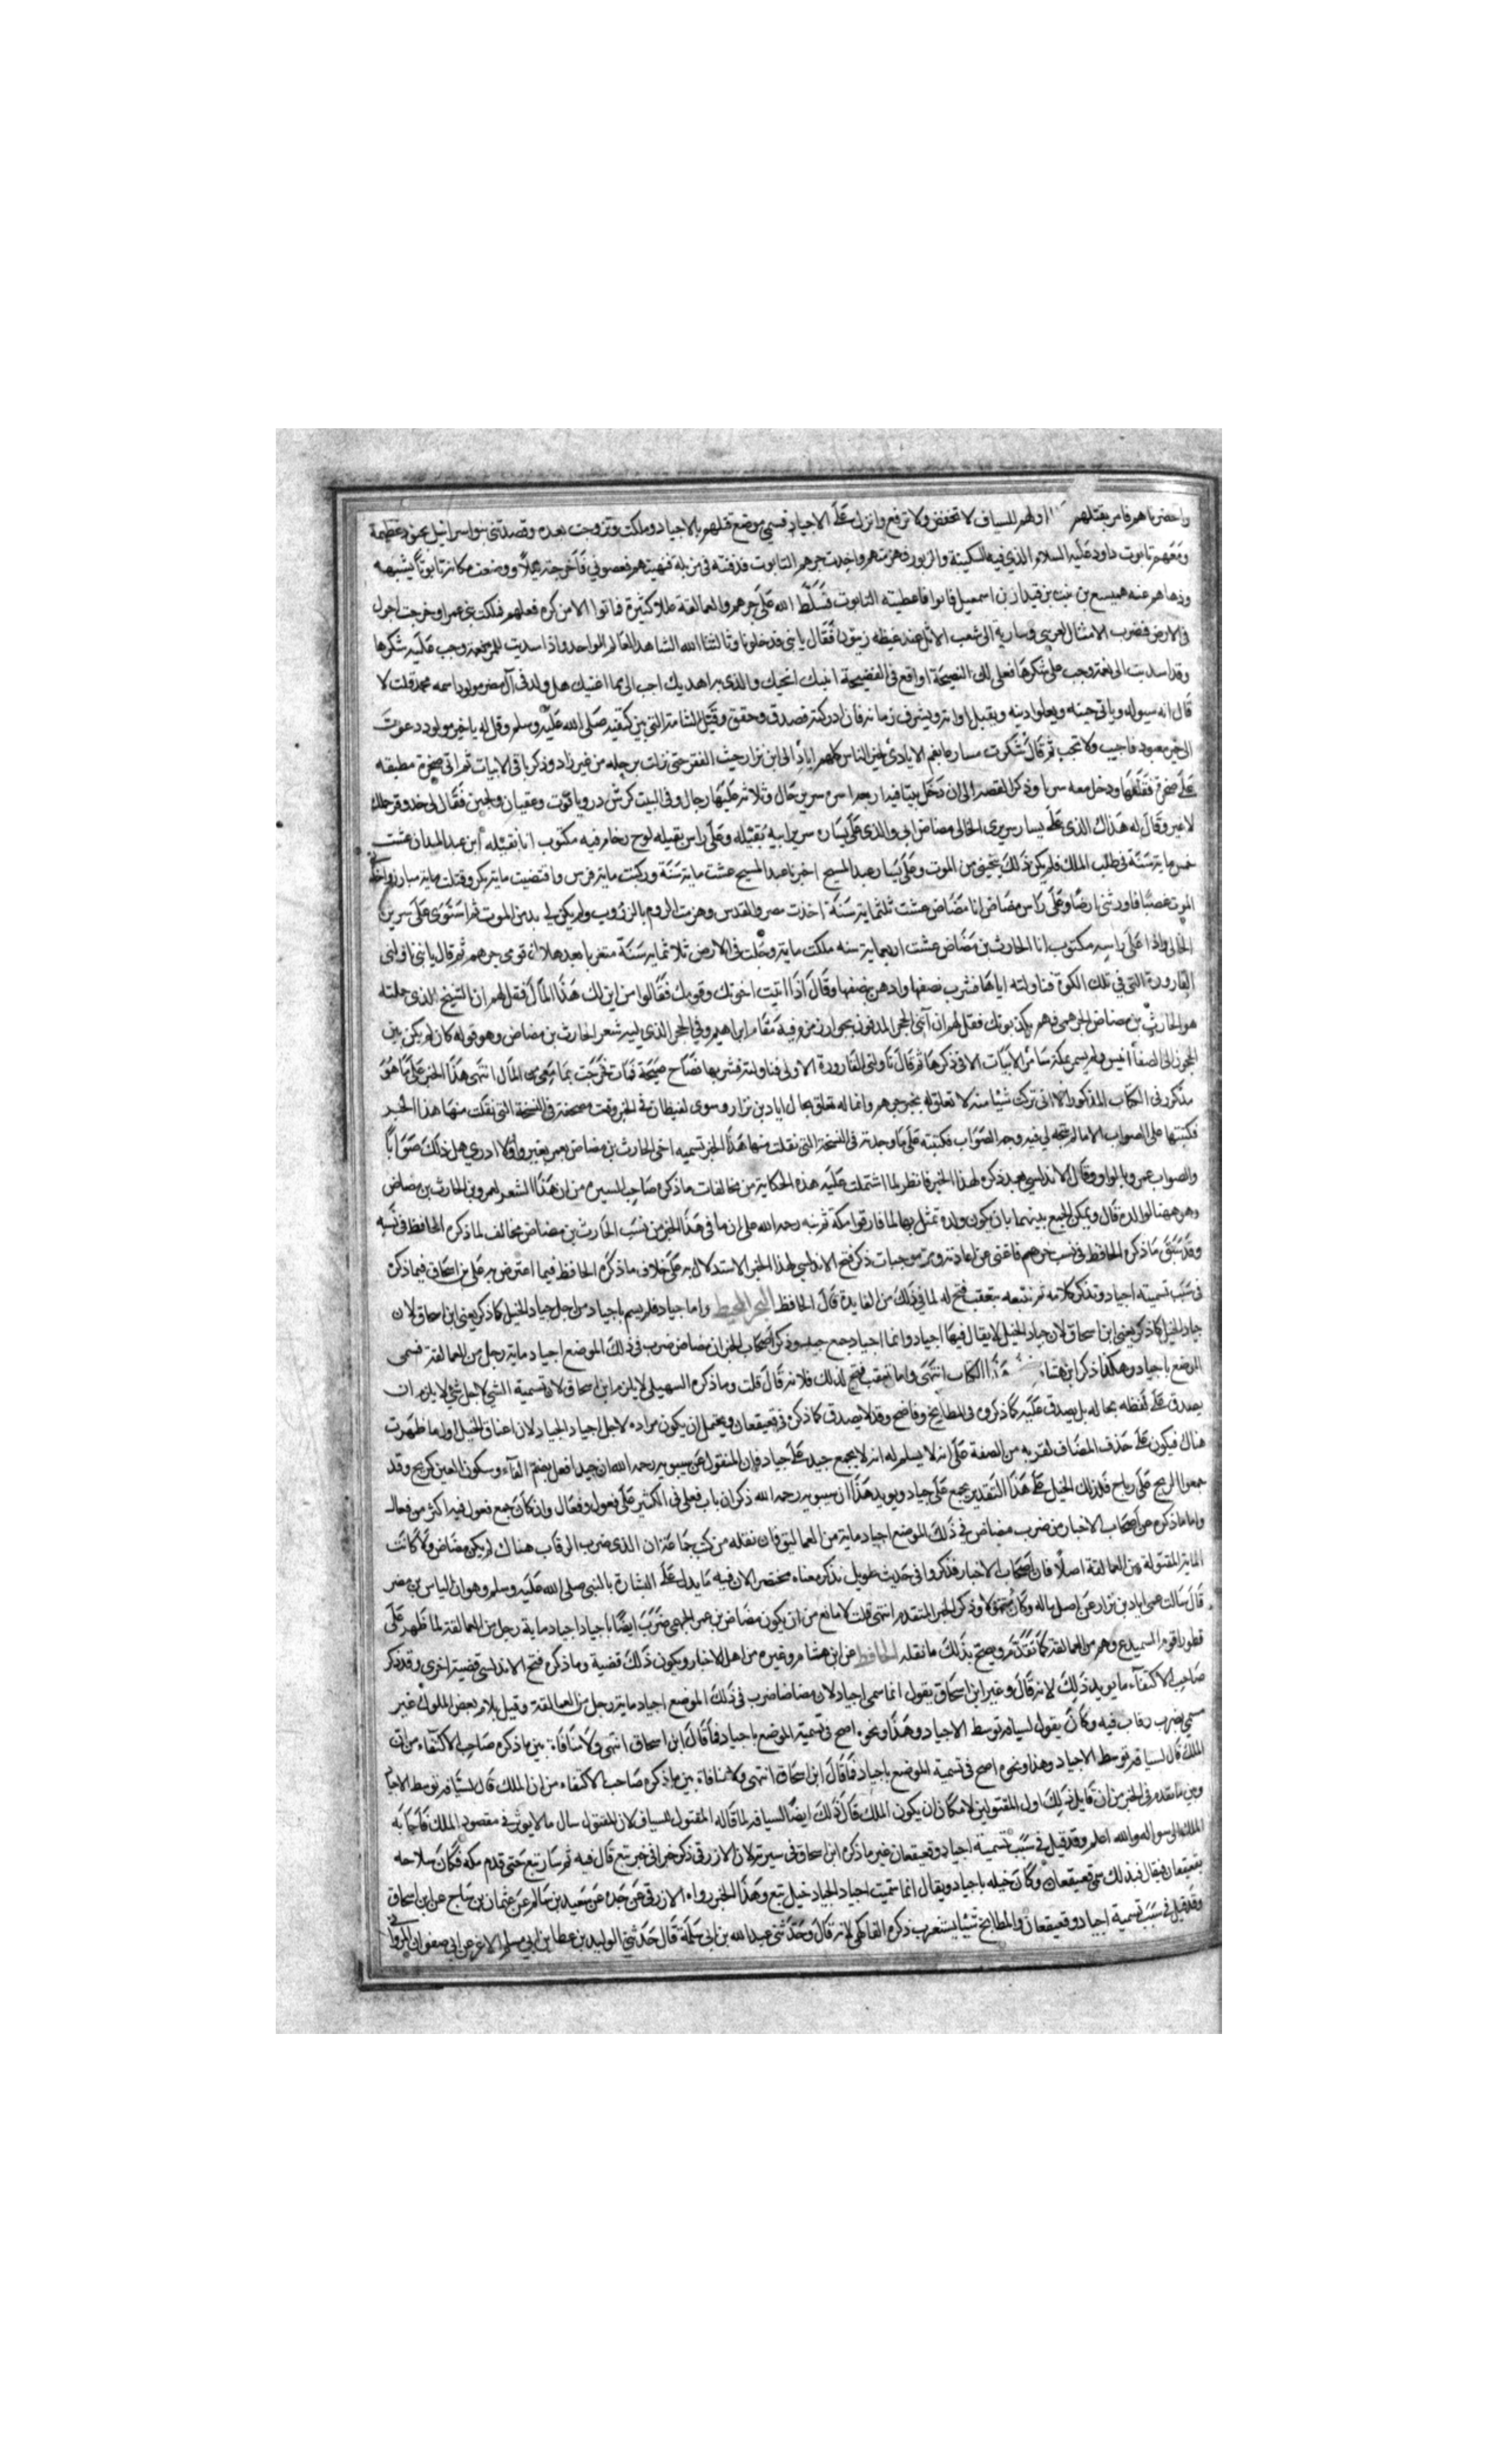 واحضرناهم فامر بقتلهم اولهم للسياف لا تخفض ولا ترفع وانزل على الاجياد فسمي موضع قتلهم بالاجياد وملكت وتزوجت بعده وقصدتني بنو اسرائيل بجنود عظيمة
ومعهم تابوت داود عليه السلام الذي فيه السكينة والزبور فهزمتهم واخذت جرهم التابوت فدفنته في مزبلة فنهيتهم فعصوني فاخرجته ليلا ووضعت مكانه تابوتا يشبهه
وذهاهم عنه هميسع بن نبت بن قيدار بن اسمعيل فابوا فاعطيته التابوت فسلط الله على جرهم والعمالقة عللا كثيرة فماتوا الا من كره فعلهم فملكت ابني عمرا وخرجت اجول
في الارض فضرب الامثال لغربتي وسار به الى شعب الاثل عند غيظه زيتون فقال يا بني قد خلونا وثالثنا الله الشاهد العالم الواحد واذا سديت للمرء نعمة وجب عليه شكرها
وقد اسديت الي نعمة وجب علي شكرها فعلي لك النصيحة او اقع في الفضيحة انبيك انجيك والذي براهديك اجب الي مما اغنيك هل ولد في آل مضر مولود اسمه محمد قلت لا
قال انه سيولد وياتي حينه ويعلو دينه ويقبل اوانه ويشرف زمانه فان ادركته فصدق وحقق وقبل الشامة التي بين كتفيه صلى الله عليه وسلم وقل له يا خير مولود دعوت
الى خير معبود فاجيب ولا تخيب ثم قال شكرت مساره بانعم الايادي لخير الناس كلهم اياد الى ابن نزار حيث الفقر حتى نزلت برجله من غير زاد وذكر باقي الابيات ثم اتى صخرة مطبقه
على صخرة فقلعها ودخل معه سربا وذكر القصة الى ان دخل بيتا فيه اربعة اسرة سرير خال وثلاثة عليها رجال وفي البيت كرش در وياقوت وعقيان ولجين فقال لي خذ وقر جملك
لا غير وقال له هذاك الذي على يسار سريري الخالي مضاض ابي والذي على يساره سرير ابيه نقيله وعلى راس نقيله لوح رخام فيه مكتوب انا نقيله ابن عبد المدان عشت
خمس ماية سنة في طلب الملك فلم يكن ذلك ينجيني من الموت وعلى يسار عبد المسيح اخبرنا عبد المسيح عشت ماية سنة وركبت ماية فرس وافتضيت ماية بكر وقتلت ماية مبارز واخذني
الموت غصبا فاورثني ارضا وعلى راس مضاض انا مضاض عشت ثلثماية سنة اخذت مصر والقدس وهزمت الروم بالدروب ولم يكن لي بد من الموت ثم استوى على سرير
الخالي واذا على راسه مكتوب انا الحارث بن مضاض عشت اربعماية سنه ملكت ماية وجلت في الارض ثلاثماية سنة متغربا بعد هلاك قومي جرهم ثم قال يا بني ناولني
القارورة التي في تلك الكوة فناولته اياها فشرب نصفها وادهن بنصفها وقال اذا اتيت اخوتك وقومك فقالوا من اين لك هذا المال فقل لهم ان الشيخ الذي حملته
هو الحارث بن مضاض الجرهمي فهم يكذبونك فقل لهم ان آيتي الحجر المدفون بجوار زمزم وفيه مقام ابراهيم وفي الحجر الذي يليه شعر الحارث بن مضاض وهو قوله كان لم يكن بين
الحجون الى الصفا انيس ولم يسمر بمكة سامر الابيات الاتي ذكرها ثم قال ناولني القارورة الاولى فناولته فشربها فصاح صيحة فمات فخرجت بما معي من المال انتهى هذا الخبر على ما هو
مذكور في الكتاب المذكور الا اني تركت شيئا منه لا تعلق له بخبر جرهم وانما له تعلق بحال اياد بن نزار وسوى لفيظات في الخبر وقعت مصحفة في النسخة التي نقلت منها هذا الخبر
فكتبتها على الصواب الا ما لم يتجه لي فيه وجه الصواب فكتبته على ما وجدته في النسخة التي نقلت منها هذا الخبر تسميه اخي الحارث بن مضاض بعمر بغير واو لا ادري هل ذلك صوابا
والصواب عمرو بالواو وقال الاندلسي بعد ذكره لهذا الخبر فانظر لما اشتملت عليه هذه الحكاية من مخالفات ما ذكره صاحب السيره من ان هذا الشعر لعمرو بن الحارث بن مضاض
وهو ههنا لوالده قال ويمكن الجمع بينهما بان يكون ولده تمثل بها لما فارقوا مكة ثم نبه رحمه الله على ان ما في هذا الخبر من نسب الحارث بن مضاض مخالف لما ذكره الحافظ في نسبه
وقد سبق ما ذكره الحافظ في نسب جرهم فاغنى عن اعادته ومن موجبات ذكر فتح الاندلسي لهذا الخبر الاستدلال به على خلاف ما ذكره الحافظ فيما اعترض به على ابن اسحاق فيما ذكره
في سبب تسميته اجياد ونذكر كلامه ثم نتبعه بتعقب فتح له لما في ذلك من الفايدة قال الحافظ البحر المحيط واما جياد فلم يسم باجياد من اجل جياد الخيل كما ذكر يعني ابن اسحاق لان
جياد الخيل كما ذكر يعني ابن اسحاق لان جياد الخيل لا يقال فيها اجياد وانما اجياد جمع جيد وذكر اصحاب الخبر ان مضاض ضرب في ذلك الموضع اجياد ماية رجل من العمالقة فسمي
الموضع باجياد وهكذا ذكر ابن هشام هذا الكتاب انتهى واما تعقب فتح لذلك فلانه قال قلت وما ذكره السهيلي لا يلزم ابن اسحاق لان تسمية الشي لاجل شي لا يلزم ان
يصدق على لفظه بحاله بل يصدق عليه كما ذكره في المطابخ وفاضح وقد لا يصدق كما ذكره في قعيقعان ويحتمل ان يكون مراده لاجل اجياد الجياد لان اعناق الخيل اول ما ظهرت
هناك فيكون على حذف المضاف لقربه من الصفة على انه لا يسلم له انه لا يجمع جيد على جياد فان المنقول عن سيبويه رحمه الله ان جيدا فعل بضم الفاء وسكون العين كريح وقد
جمعوا الريح على رياح فلذلك الخيل على هذا التقدير يجمع على جياد ويويد هذا ان سيبويه رحمه الله ذكر ان باب فعل في الكثير على فعول وفعال وان كان جمع فعول فيه اكثر من فعال
واما ما ذكره عن اصحاب الاخبار من ضرب مضاض في ذلك الموضع اجياد ماية من العماليق فان نقله من كتب جماعة ان الذي ضرب الرقاب هناك لم يكن مضاض ولا كانت
الماية المقتولة من العمالقة اصلا فان اصحاب الاخبار فذكروا في حديث طويل نذكر معناه مختصرا لان فيه ما يدل على البشارة بالنبي صلى الله عليه وسلم وهو ان الياس بن مضر
قال سالت عمي اياد بن نزار عن اصل ماله وكان متمولا وذكر الخبر المتقدم انتهى قلت لا مانع من ان يكون مضاض بن عمرو الجرهمي ضرب ايضا باجياد اجياد ماية رجل من العمالقة لما ظهر على
قطورا قوم السميدع وهم من العمالقة كما تقدم ويصح بذلك ما نقله الحافظ عن ابن هشام وغيره من اهل الاخبار ويكون ذلك قضية وما ذكره فتح الاندلسي قضية اخرى وقد ذكر
صاحب الاكتفاء ما يويد ذلك لانه قال وغير ابن اسحاق يقول انما سمي اجياد لان مضاضا ضرب في ذلك الموضع اجياد ماية رجل من العمالقة وقيل بل امر بعض الملوك غير
مسمى بضرب رقاب فيه وكان يقول لسيافه توسط الاجياد وهذا ونحوه اصح في تسمية الموضع باجياد فما قال ابن اسحاق انتهى ولا منافاة بين ما ذكره صاحب الاكتفاء من ان
الملك قال لسيافه توسط الاجياد وهذا ونحوه اصح في تسمية الموضع باجياد فما قال ابن اسحاق انتهى ولا منافاة بين ما ذكره صاحب الاكتفاء من ان الملك قال لسيافه توسط الاجياد
وبين ما تقدم في الخبر من ان قايل ذلك اول المقتولين لامكان ان يكون الملك قال ذلك ايضا لسيافه لما قاله المقتول للسياف لان المقتول سال ما لا يوثر في مقصود الملك فاجابه
الملك الى سواله والله اعلم وقد قيل في سبب تسمية اجياد وقعيقعان غير ما ذكره ابن اسحاق في سيرته لان الازرقي ذكر خبرا في خبر تبع قال فيه ثم سار تبع حتى قدم مكه فكان سلاحه
بقعيقعان فيقال فبذلك سمي قعيقعان وكان خيله باجياد ويقال انما سميت اجياد اجياد الجياد خيل تبع وهذا الخبر رواه الازرقي عن جده عن سعيد بن سالم عن عثمان بن ساج عن ابن اسحاق
وقد قيل في سبب تسمية اجياد وقعيقعان والمطابخ شيئا يستغرب ذكره الفاكهي لانه قال وحدثني عبد الله بن ابي سلمة قال حدثني الوليد بن عطا بن ابي مسلم الاغر عن ابي صفوان المرواني